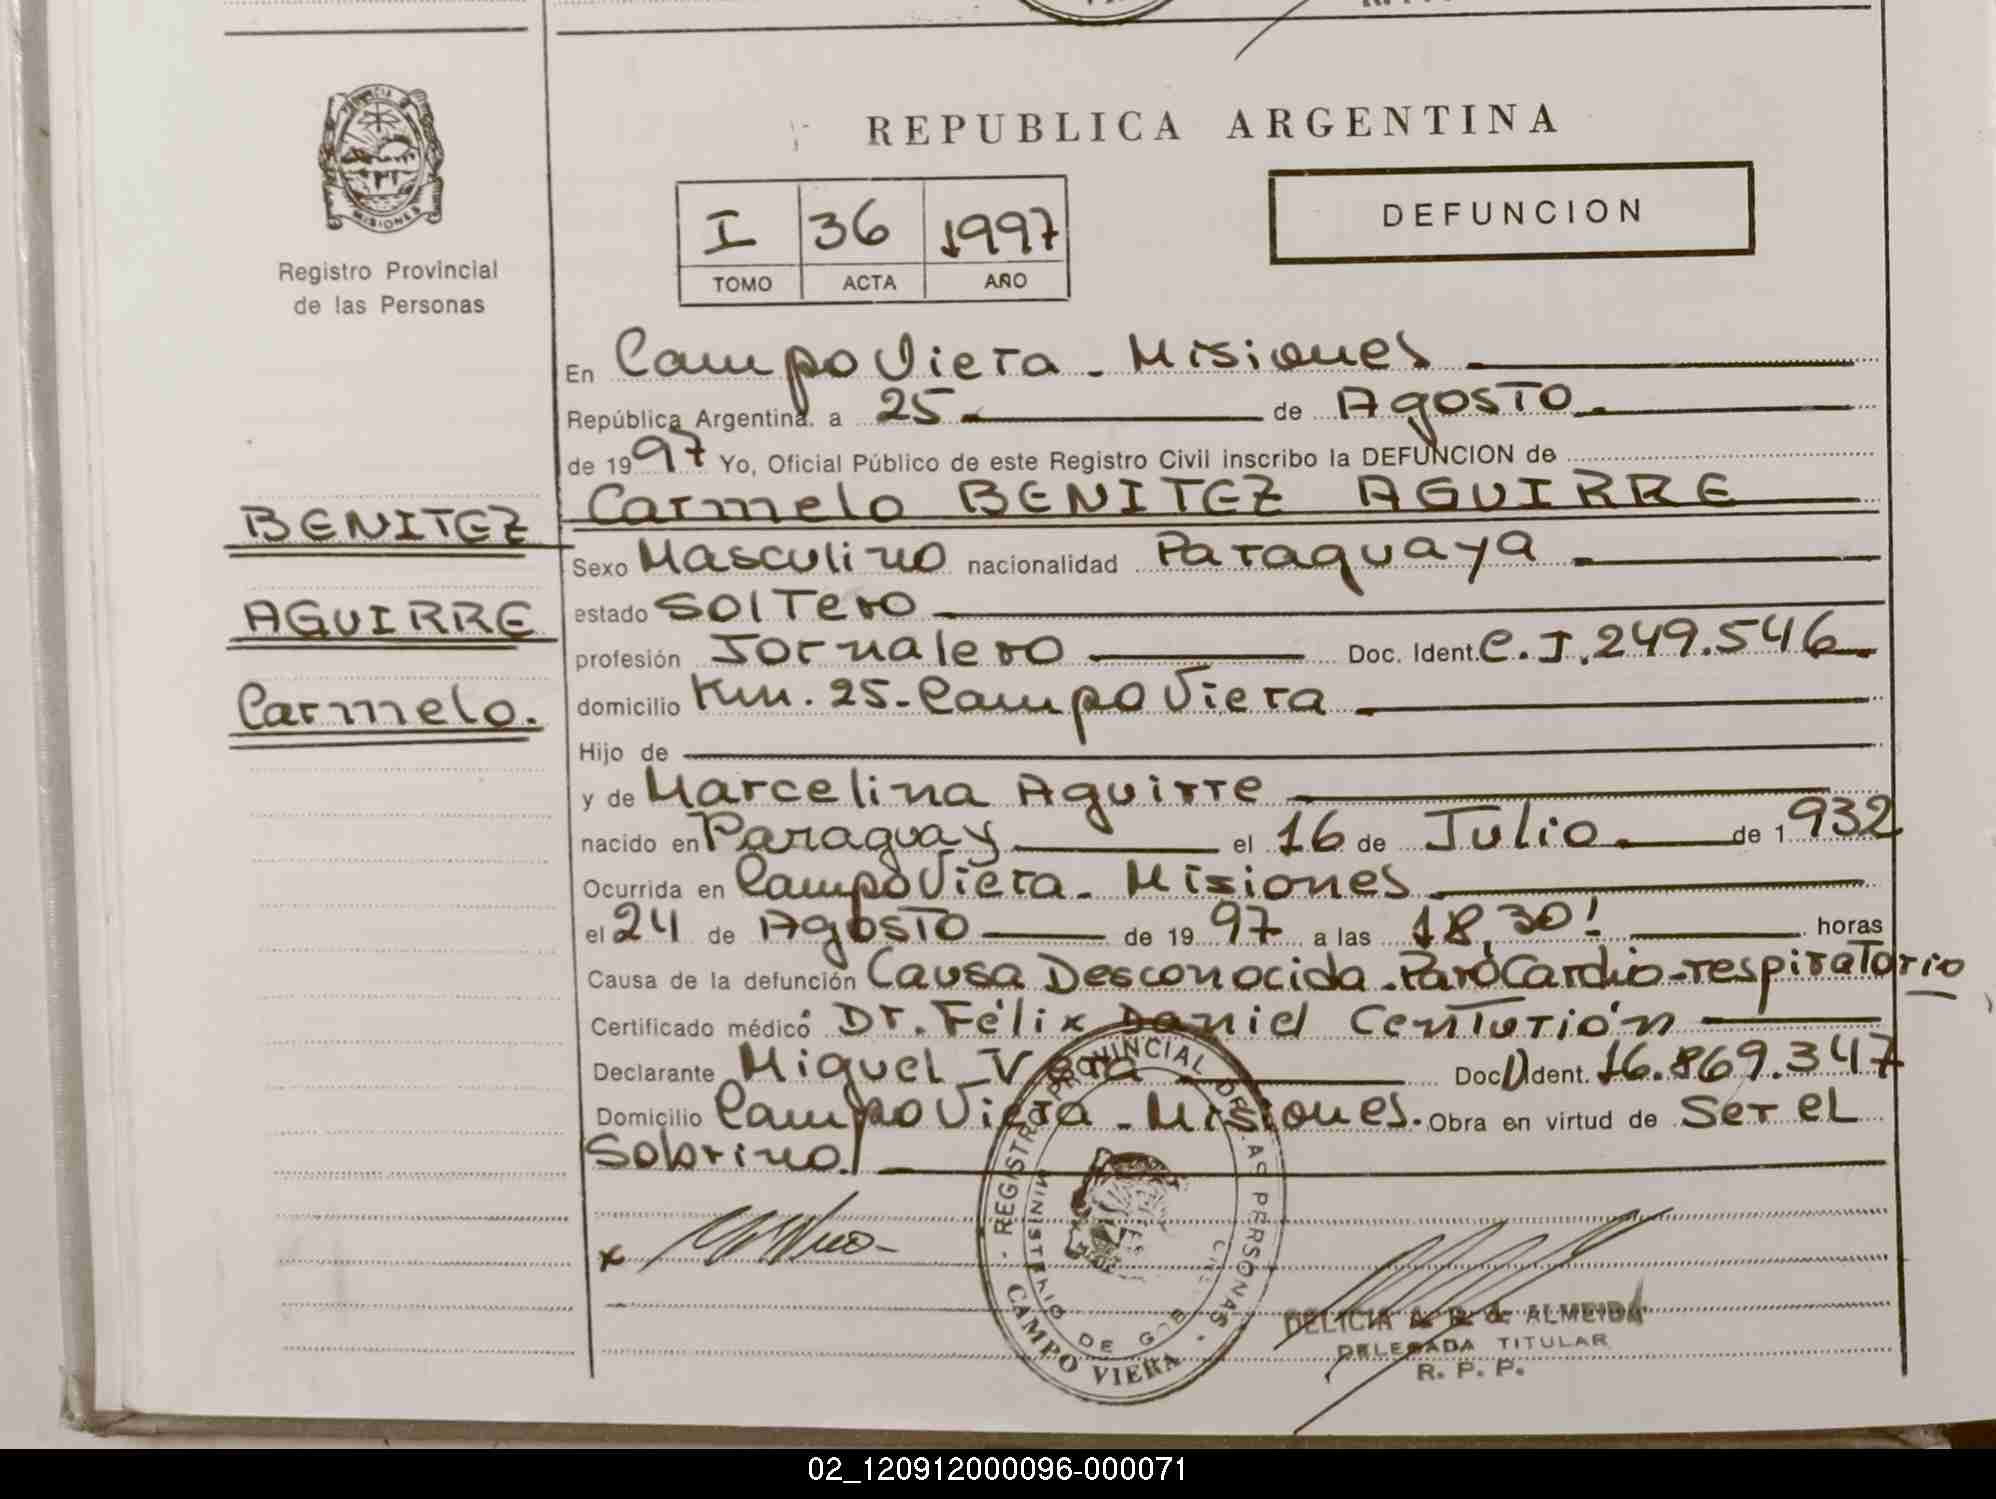 PROVINCIA D
MISIONES
Registro Provincial
de las Personas
REPUBLICA ARGENTINA
I 36 1997
TOMO ACTA AÑO
DEFUNCION
En Campo Viera - Misiones
República Argentina. a 25 de Agosto
de 1997 Yo, Oficial Público de este Registro Civil inscribo la DEFUNCION de
Carmelo BENITEZ AGUIRRE
BENITEZ
AGUIRRE
Carmelo.
Sexo Masculino nacionalidad Paraguaya
estado Soltero
profesión Jornalero Doc. Ident. C.I. 249.546
domicilio Km. 25 - Campo Viera
Hijo de
y de Marcelina Aguirre
nacido en Paraguay el 16 de Julio de 1932
Ocurrida en Campo Viera - Misiones
el 24 de Agosto de 1997 a las 18,30! horas
Causa de la defunción Causa Desconocida - Paro Cardio-respiratorio
Certificado médico Dr. Félix Daniel Centurión
Declarante Miguel Vera Doc. Ident. 16.869.347
Domicilio Campo Viera - Misiones. Obra en virtud de Ser el
Sobrino./
x
REGISTRO PROVINCIAL DE LAS PERSONAS
MINISTERIO DE GOB
CAMPO VIERA
DELICIA A. R. de ALMEIDA
DELEGADA TITULAR
R. P. P.
02_120912000096-000071